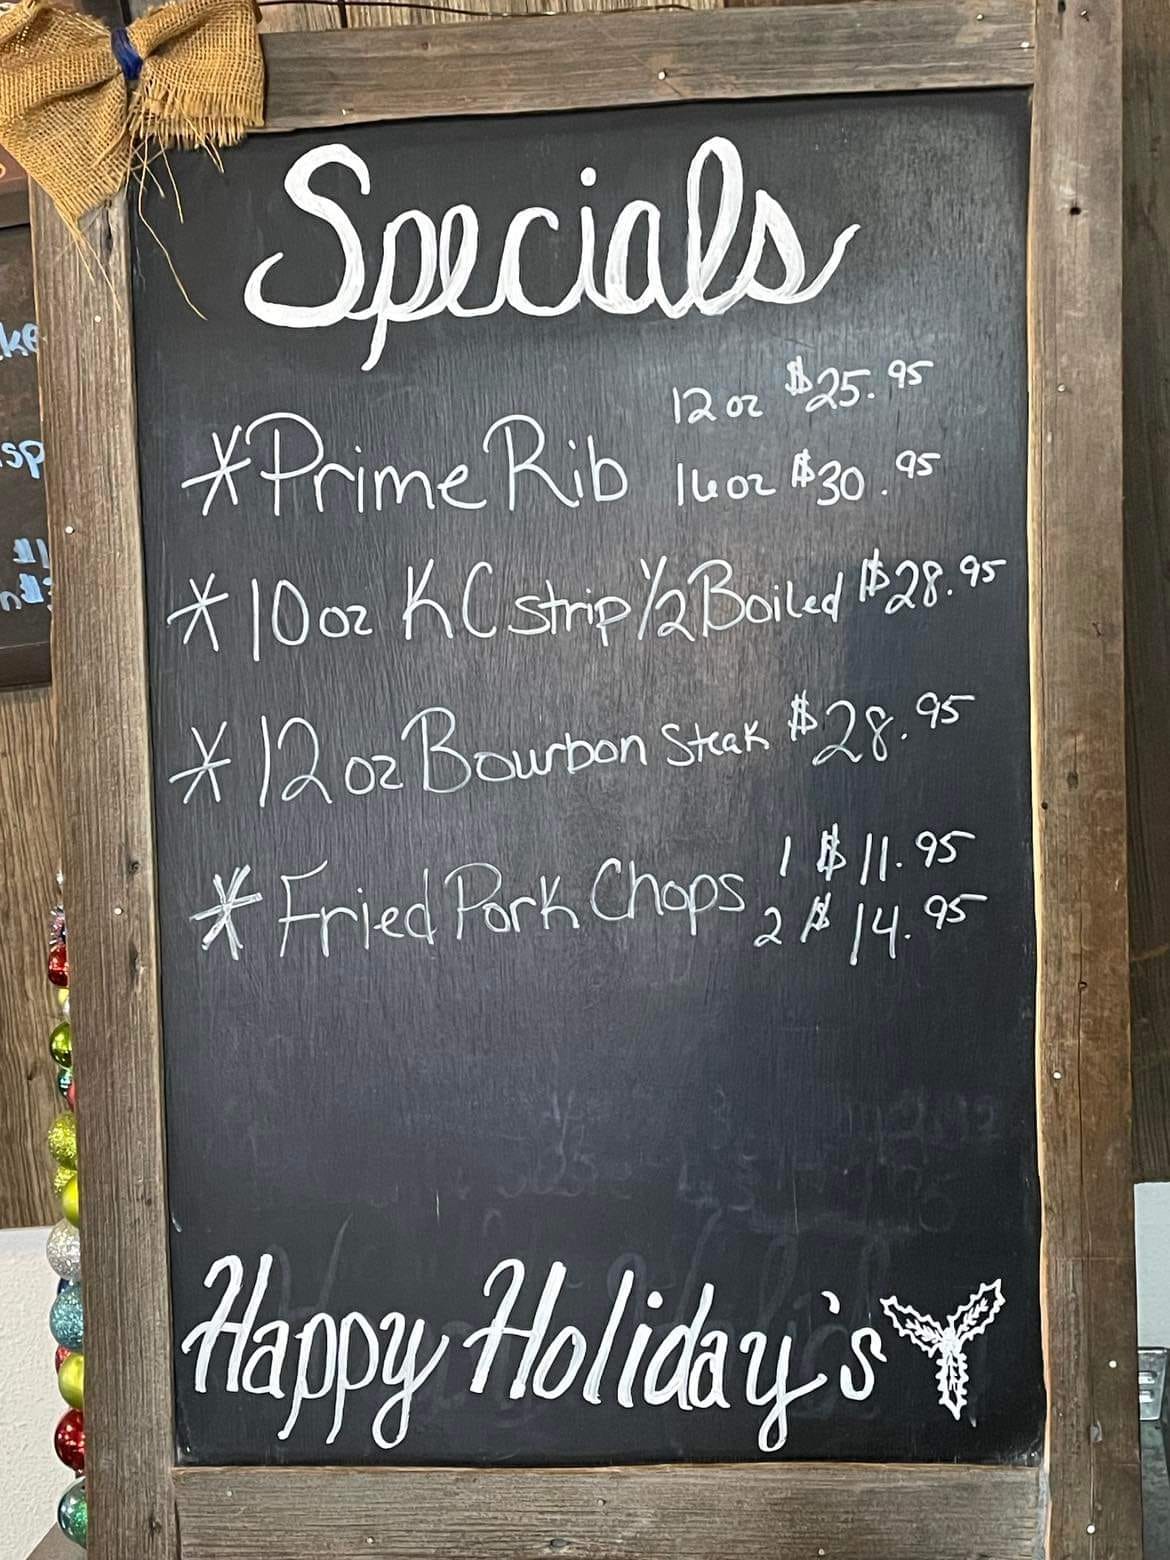 Specials
12 oz $25.95
*Prime Rib 16oz $30.95
*10oz KC strip/½ Boiled $28.95
*12 oz Bourbon Steak $28.95
1 $11.95
*Fried Pork Chops 2 $14.95
Happy Holiday's
ke
sp